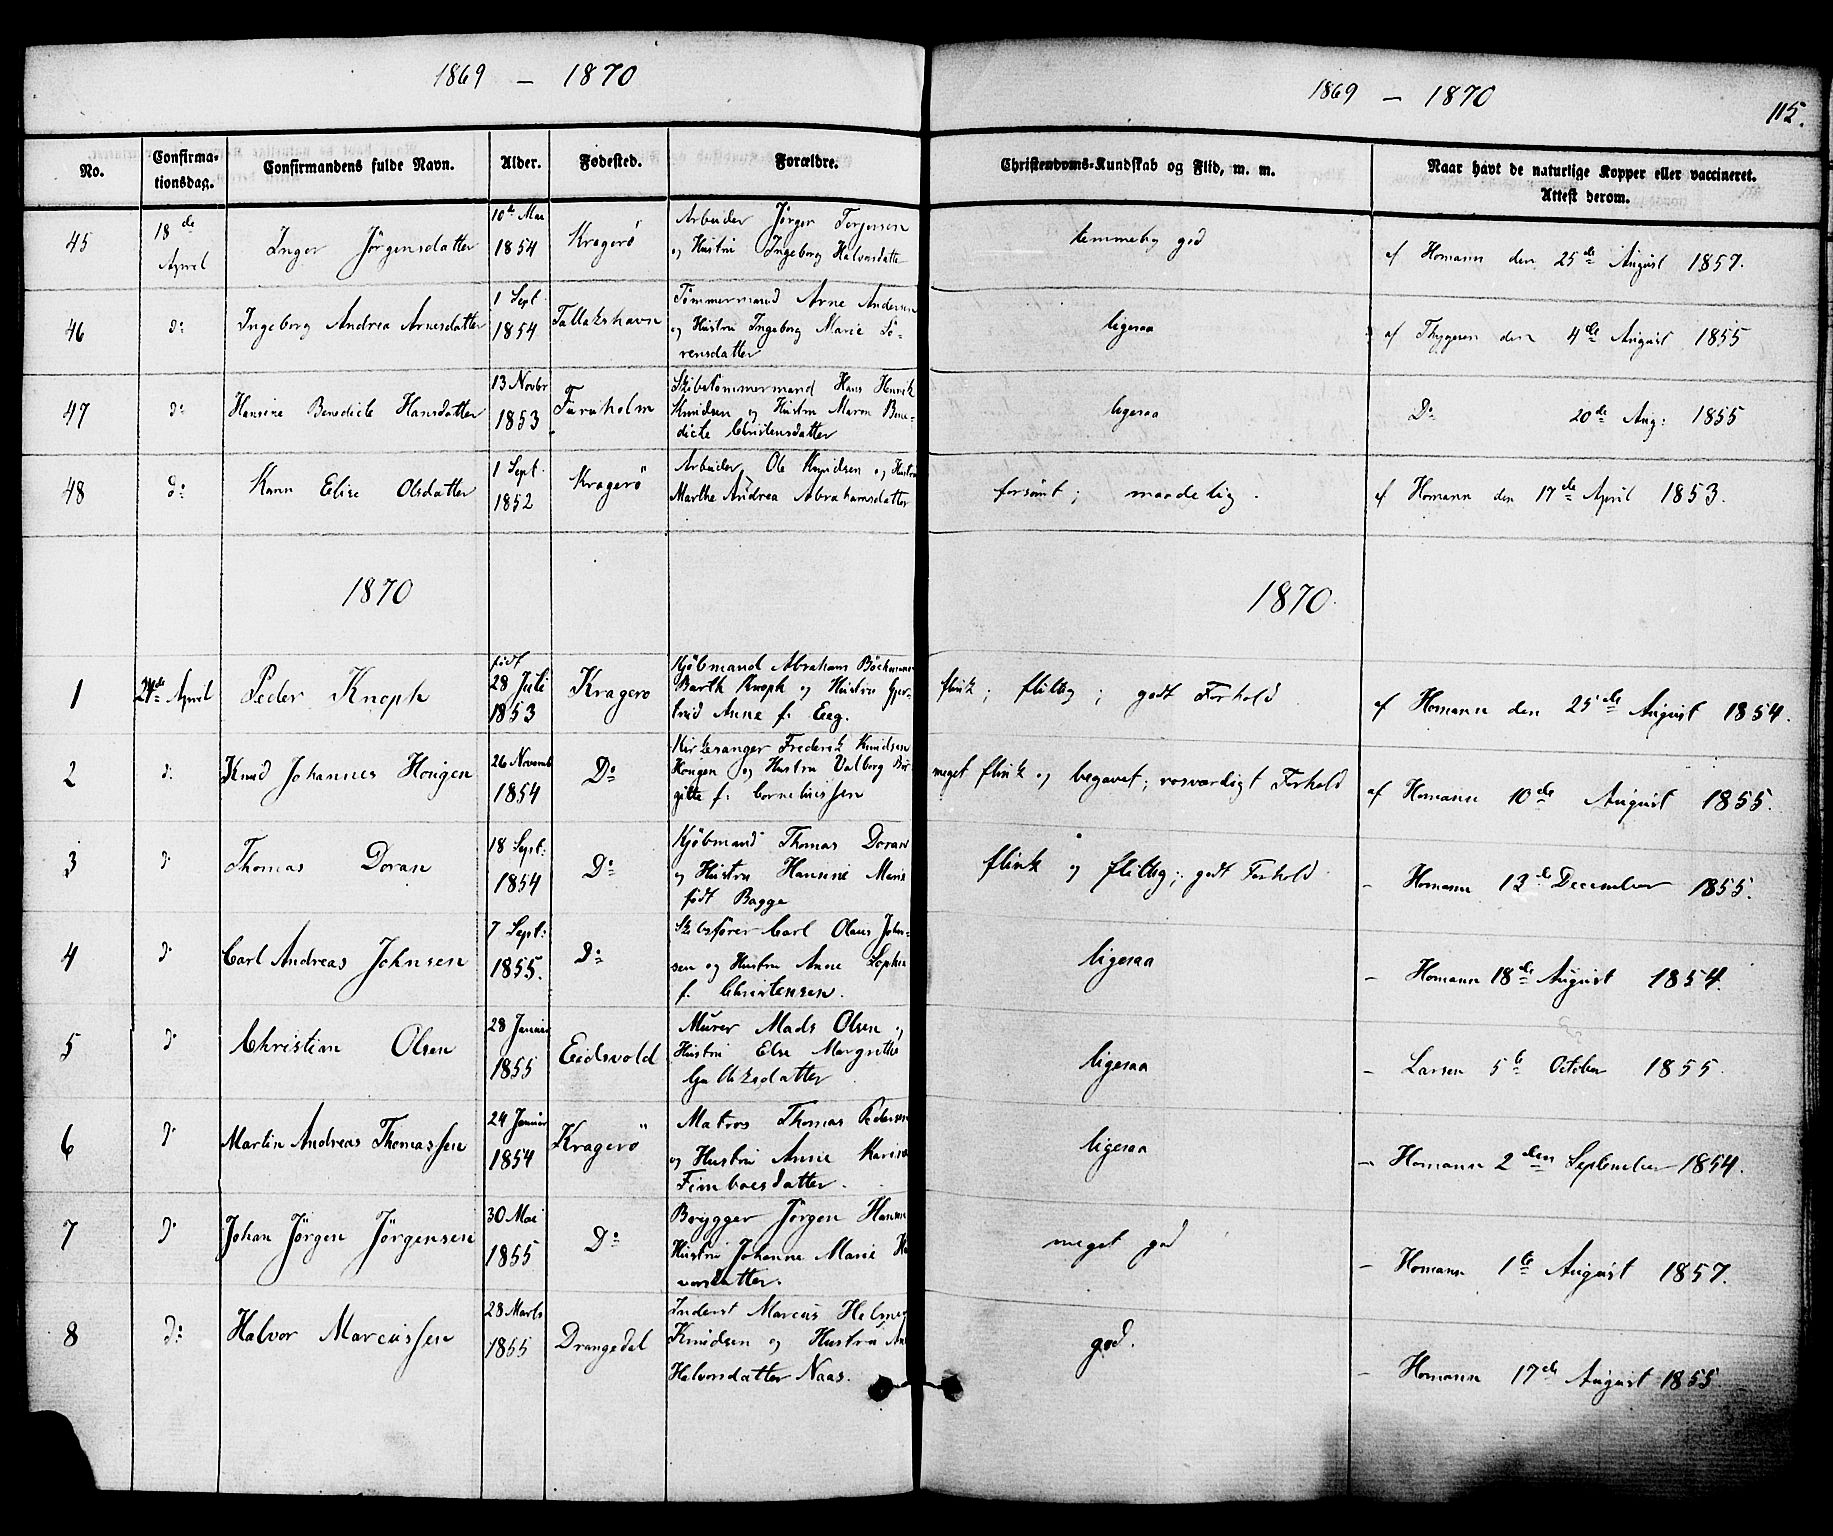 1869 – 1870
1869 – 1870
115.
No.
Confirma-
tionsdag.
Confirmandens fulde Navn.
Alder.
Fødested.
Forældre.
Christendoms-Kundskab og Flid, m. m.
Naar havt de naturlige Kopper eller vaccineret.
Attest derom.
45
18de
April
Inger Jörgensdatter
10de Mai
1854
Kragerö
Arbeider Jörger Terjesen
og Hustru Ingeborg Halvorsdatter
temmelig god
af Homann den 25de August 1857.
46
do
Ingeborg Andrea Arnesdatter
1 Sept
1854
Tallakshavn
Tömmermand Arne Andersen
og Hustru Ingeborg Marie Sö-
rensdatter
ligesaa
af Thygesen den 4de August 1855
47
do
Hansine Benedicte Hansdatter
13 Novbr
1853
Furuholm
Skibstömmermand Hans Henrik
Knudsen og Hustru Maren Bene-
dicte Christensdatter
ligesaa
Do 20de Aug: 1855
48
do
Karen Elise Olsdatter
1 Sept.
1852
Kragerö
Arbeider Ole Knudsen og Hustru
Marthe Andrea Abrahamsdatter
forsömt; maadelig.
af Homann den 17de April 1853.
1870
1870.
1
24de April
Peder Knoph
født
28 Juli
1853
Kragerö
Kjöbmand Abraham Böckmann
Barth Knoph og Hustru Gjer-
trud Anne f. Eeg.
flink; flittig; godt Forhold
af Homann den 25de August 1854.
2
do
Knud Johannes Hougen
26 Novemb
1854
Do
Kirkesanger Frederik Knudsen
Hougen og Hustru Valborg Bir-
gitte f. Corneliussen
meget flink og begavet; rosværdigt Forhold
af Homann 10de August 1855.
3
do
Thomas Doran
18 Sept:
1854
Do
Kjöbmand Thomas Doran
og Hustru Hansine Marie
født Bagge
flink og flittig; godt Forhold
– Homann 13de December 1855.
4
do
Carl Andreas Johnsen
7 Sept:
1855.
Do
Skibsfører Carl Olaus John-
sen og Hustru Anne Sophie
f. Christensen.
ligesaa
– Homann 18de August 1854.
5
do
Christian Olsen
28 Januar
1855
Eidsvold
Murer Mads Olsen og
Hustru Else Margrethe
Gulliksdatter
ligesaa
– Larsen 5te October 1855.
6
do
Martin Andreas Thomassen
24 Januar
1854
Kragerö
Matros Thomas Pedersen
og Hustru Anne Karine
Fimboesdatter.
ligesaa
– Homann 2den September 1854.
7
do
Johan Jörgen Jörgensen
30 Mai
1855
Do
Brygger Jörgen Hansen
Hustru Johanne Marie Ha
vorsdatter.
meget god
– Homann 1te August 1857.
8
do
Halvor Marcussen
28 Marts
1855
Drangedal
Inderst Marcus Helmer
Knudsen og Hustru An
Halvorsdatter Naas.
god.
– Homann 17de August 1855.